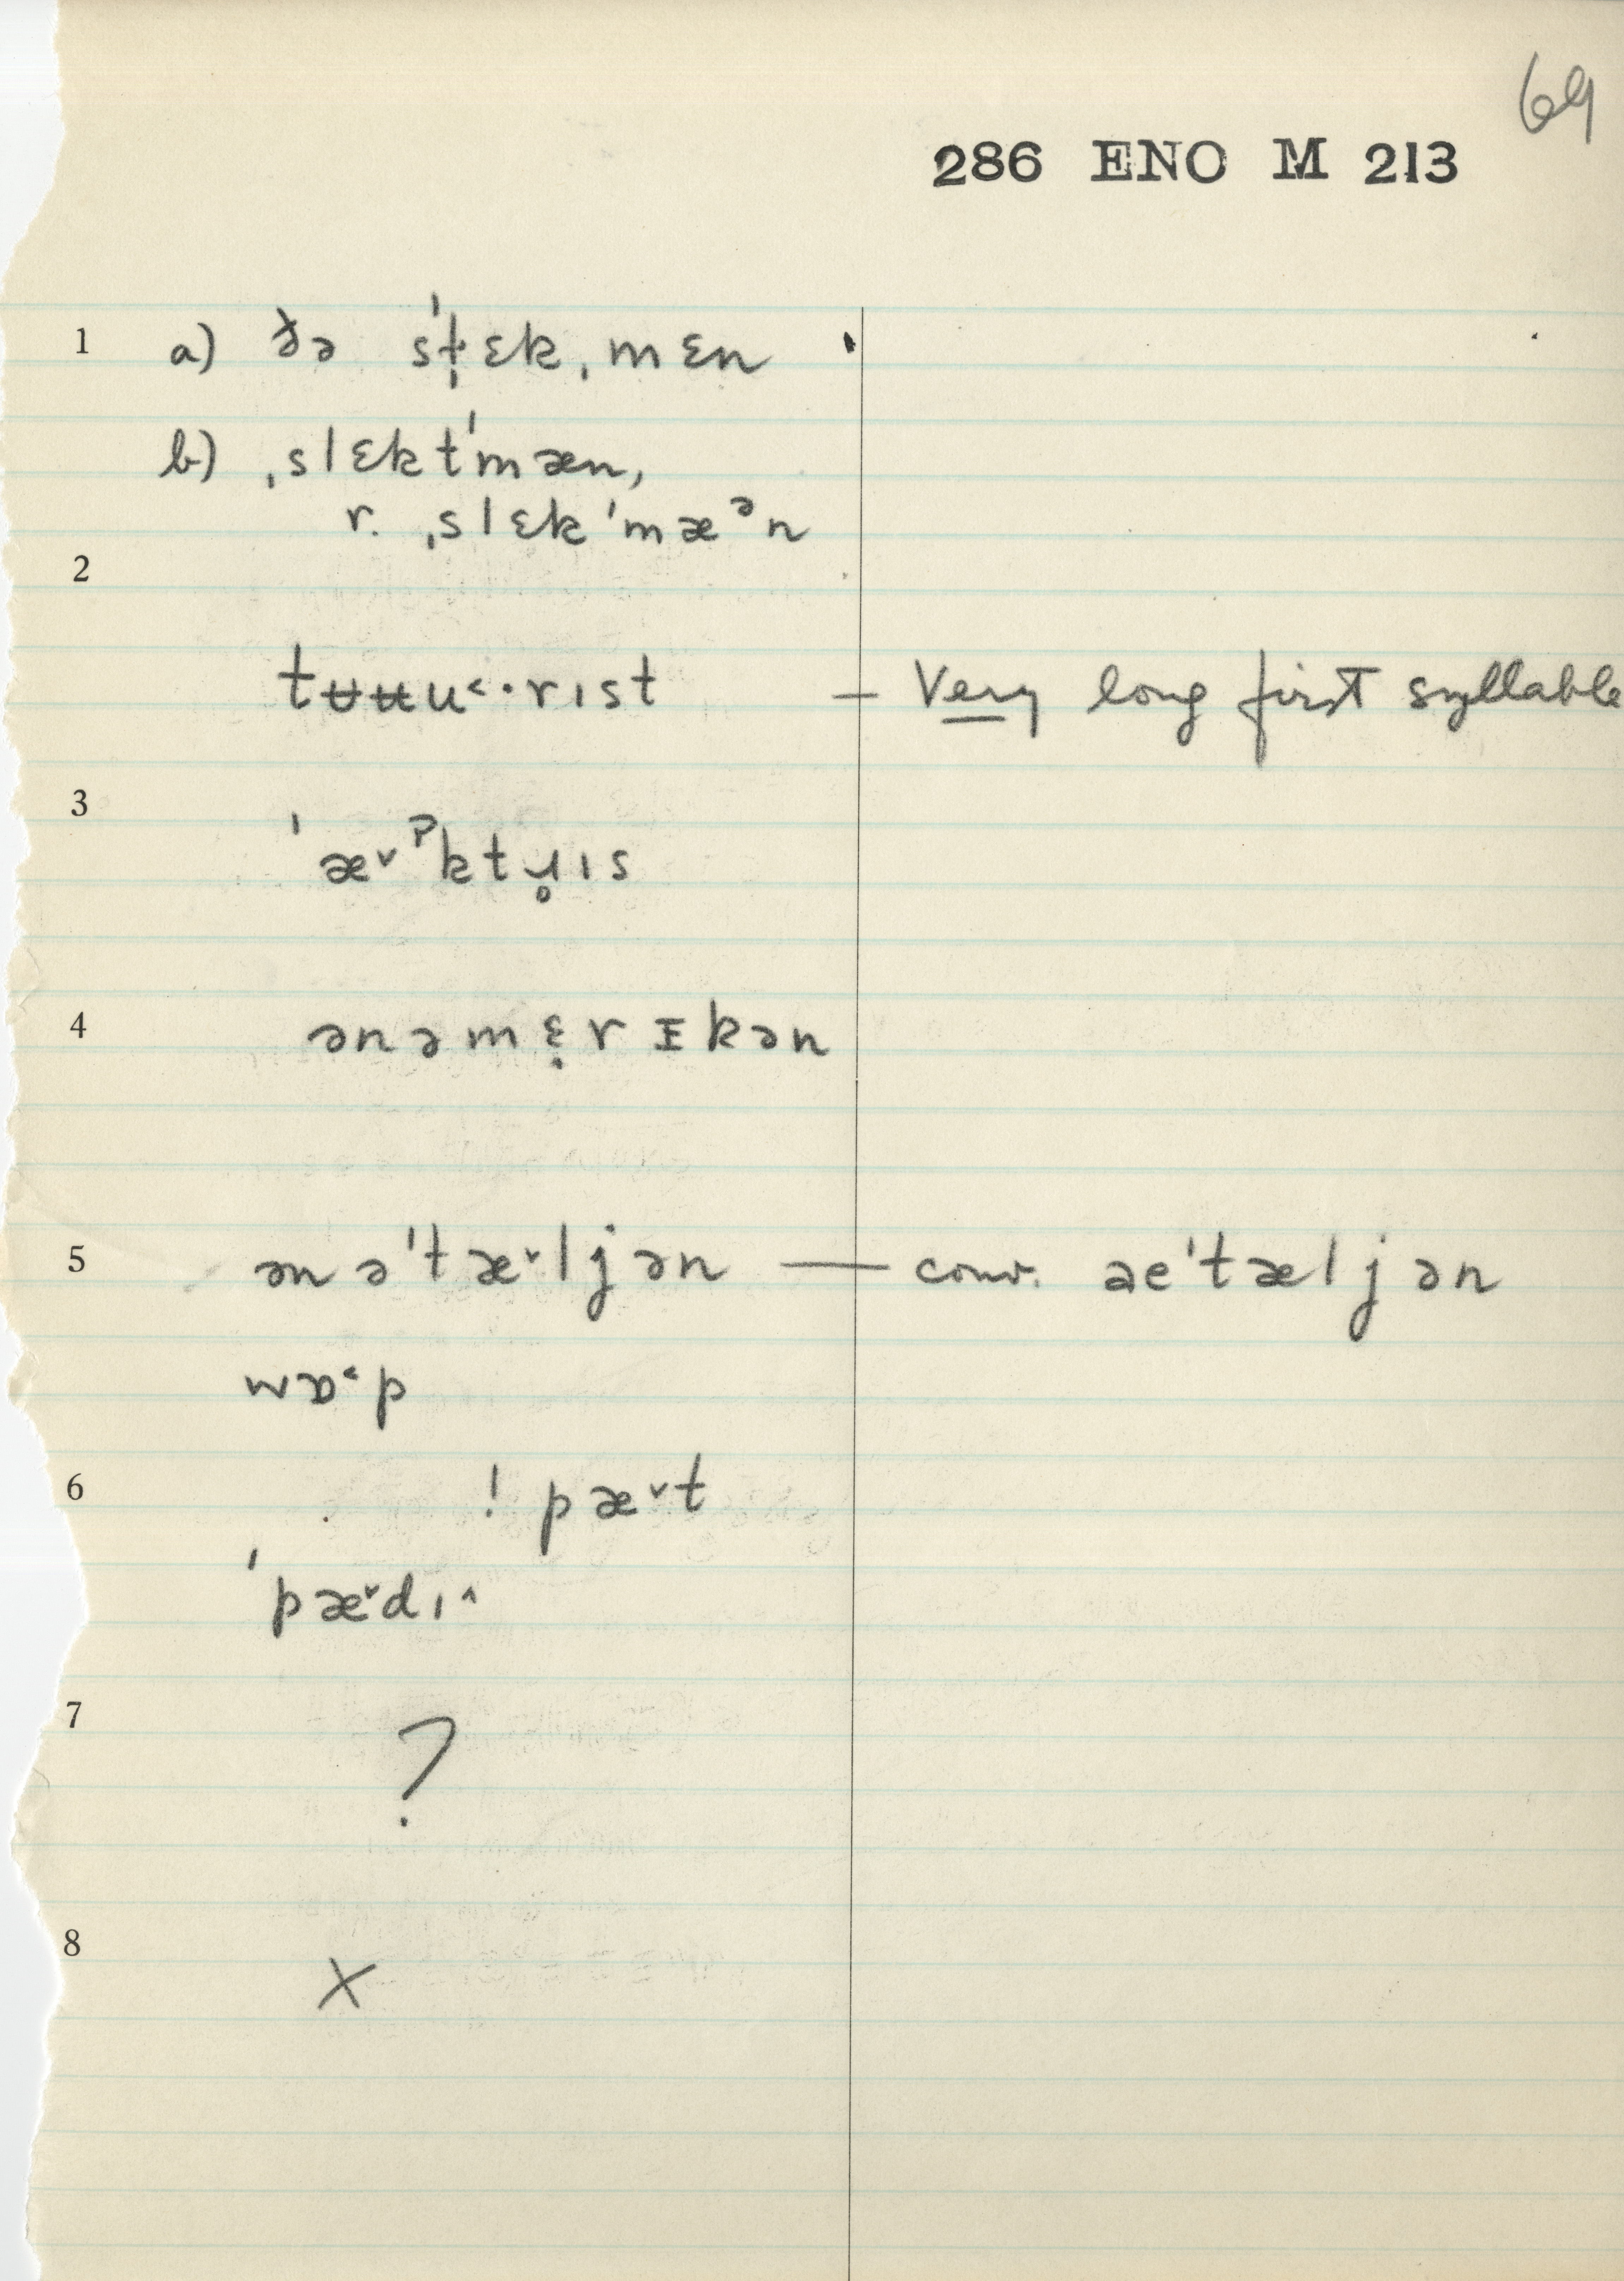 69
286 ENO M 213
1 a) ðə ˈst̩ɛkˌmɛn
b) ˌslɛktˈmæn,
r. ˌslɛkˈmæᵊn
2
tʉʉu˂·rɪst — Very long first syllable
3
ˈæ˅ˀktɹ̥ɪs
4 ənəmɛ̣rᵻkən
5 ən əˈtæ˅·ljən — conv. aeˈtæljən
wɒ˂·p
6 ! pæ˅t
ˈpæ˅dɪ˄
7
?
8
X